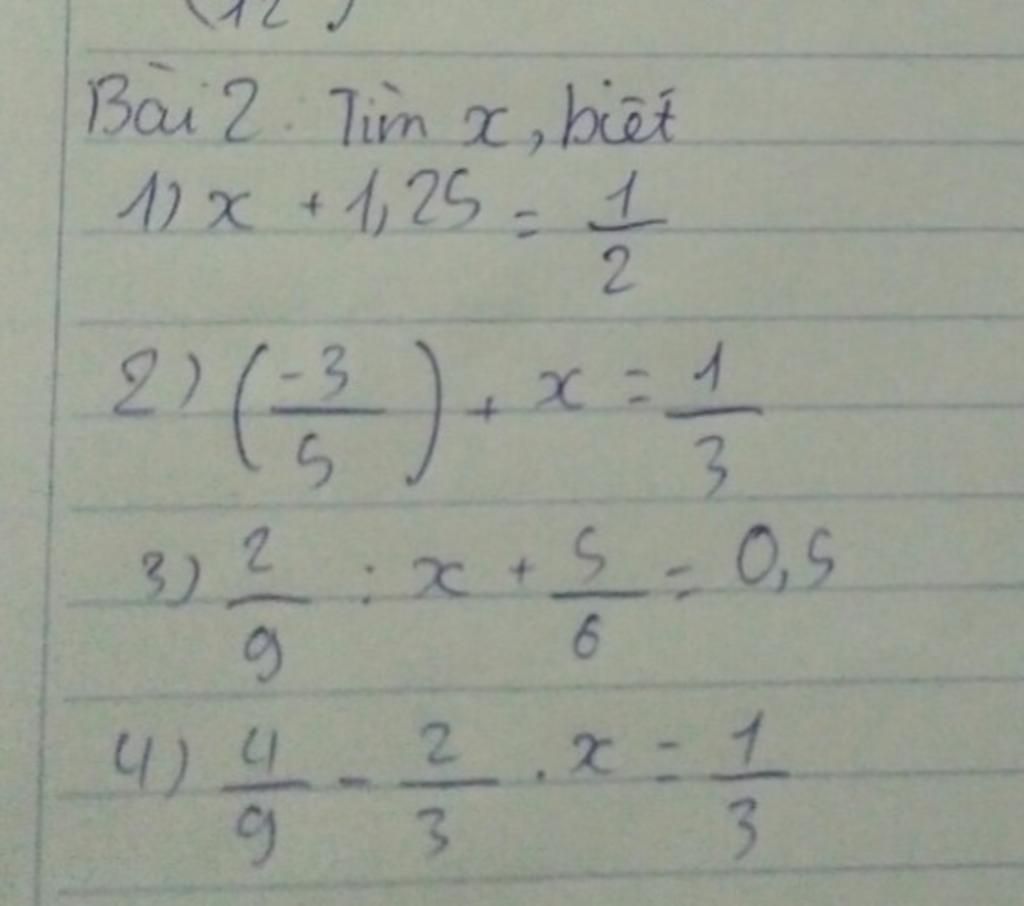 (12)
Bài 2. Tìm x, biết
1) x + 1,25 = 1/2
2) (-3/5) + x = 1/3
3) 2/9 : x + 5/6 = 0,5
4) 4/9 - 2/3 . x = 1/3